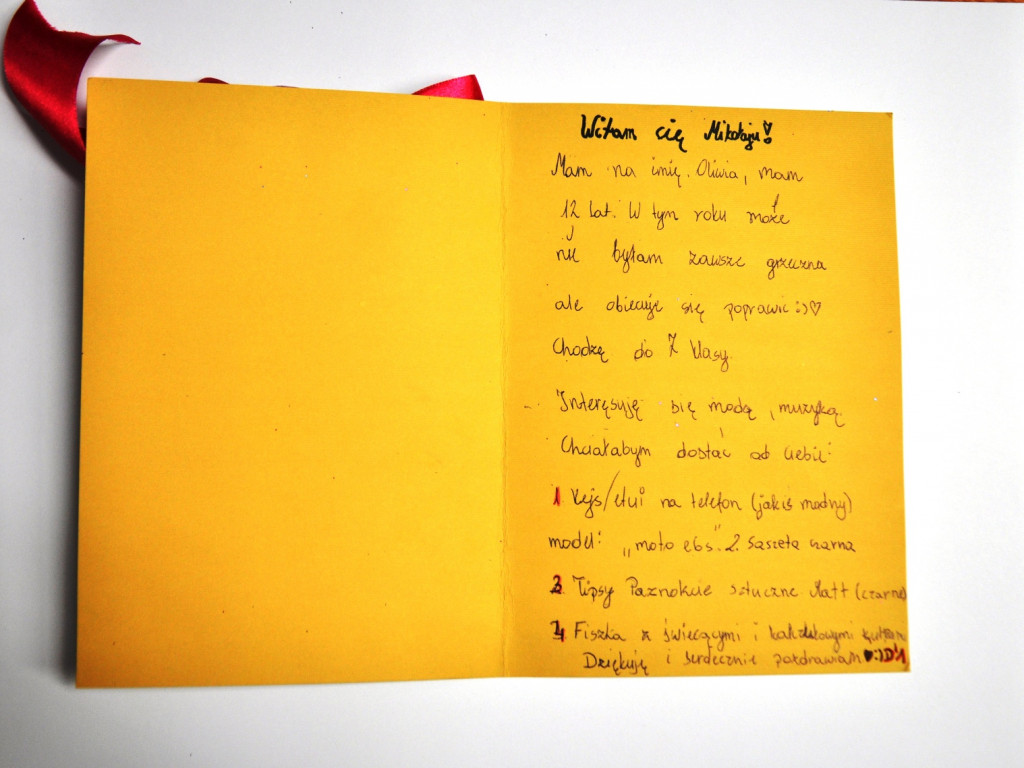 Witam cię Mikołaju!
Mam na imię. Oliwia, mam
12 lat. W tym roku może
nie byłam zawsze grzeczna
ale obiecuję się poprawić :) ♡
Chodzę do 7 klasy.
Interęsuję się modą, muzyką.
Chciałabym dostać od ciebie:
1 Kejs/etui na telefon (jakiś modny)
model: „moto e6s." 2. Saszeta czarna
3 Tipsy Paznokcie sztuczne Matt (czarne)
4 Fiszka z świecącymi i
Dziękuję i serdecznie pozdrawiam ♥:)